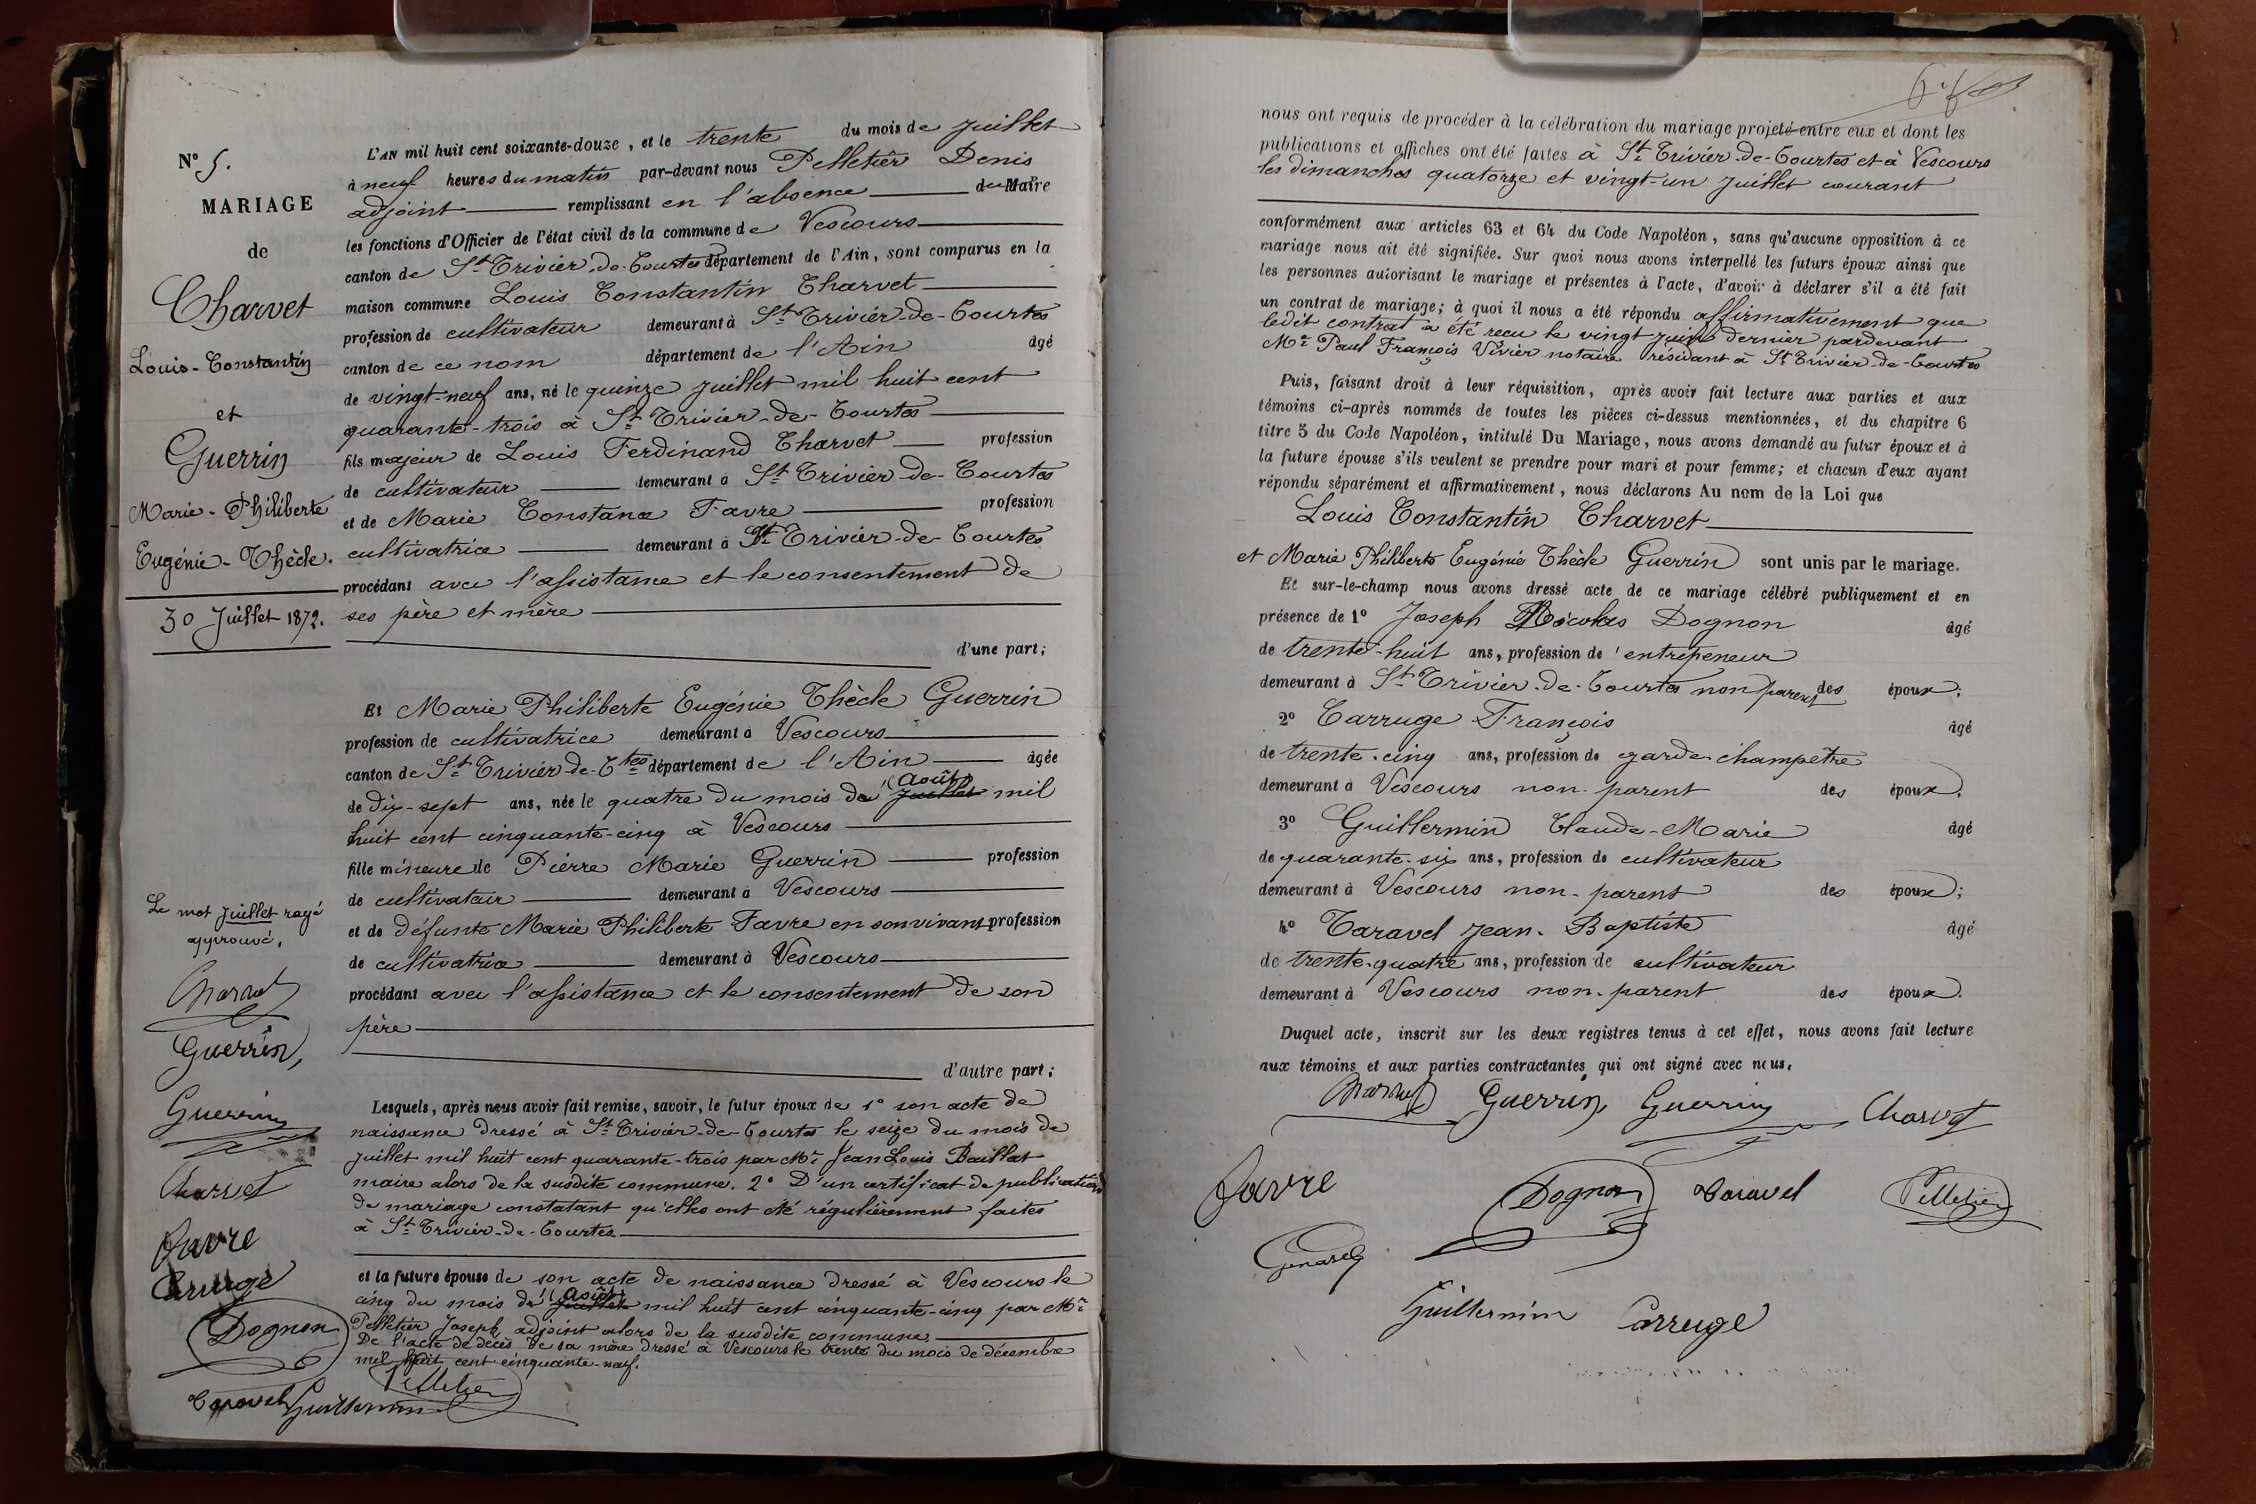 N° 5.
MARIAGE
de
Charvet
Louis-Constantin
et
Guerrin
Marie-Philiberte
Eugénie-Thècle.
30 Juillet 1872.
Le mot juillet rayé
approuvé.
Charvet
Guerrin
Guerrin
Charvet
Favre
Carruge
Dognon
Taravel Guillermin
L'AN mil huit cent soixante-douze, et le trente du mois de Juillet
à neuf heures du matin par-devant nous Pelletier Denis
adjoint remplissant en l'absence du Maire
les fonctions d'Officier de l'état civil de la commune de Vescours
canton de St Trivier-de-Courtes département de l'Ain, sont comparus en la
maison commune Louis Constantin Charvet
profession de cultivateur demeurant à St Trivier-de-Courtes
canton de ce nom département de l'Ain âgé
de vingt-neuf ans, né le quinze juillet mil huit cent
quarante-trois à St Trivier-de-Courtes
fils majeur de Louis Ferdinand Charvet profession
de cultivateur demeurant à St Trivier-de-Courtes
et de Marie Constance Favre profession
cultivatrice demeurant à St Trivier-de-Courtes
procédant avec l'assistance et le consentement de
ses père et mère
d'une part;
Et Marie Philiberte Eugénie Thècle Guerrin
profession de cultivatrice demeurant à Vescours
canton de St Trivier-de-Ctes département de l'Ain âgée
de dix-sept ans, née le quatre du mois de (Août) juillet mil
huit cent cinquante-cinq à Vescours
fille mineure de Pierre Marie Guerrin profession
de cultivateur demeurant à Vescours
et de défunte Marie Philiberte Favre en son vivant profession
de cultivatrice demeurant à Vescours
procédant avec l'assistance et le consentement de son
père
d'autre part;
Lesquels, après nous avoir fait remise, savoir, le futur époux de 1° son acte de
naissance dressé à St Trivier-de-Courtes le seize du mois de
juillet mil huit cent quarante-trois par Mr Jean Louis Baillat
maire alors de la susdite commune. 2° D'un certificat de publication
de mariage constatant qu'elles ont été régulièrement faites
à St Trivier-de-Courtes
et la future épouse de son acte de naissance dressé à Vescours le
cinq du mois de (Août) juillet mil huit cent cinquante-cinq par Mr
Pelletier Joseph adjoint alors de la susdite commune
De l'acte de décès de sa mère dressé à Vescours le trente du mois de décembre
mil huit cent cinquante-neuf.
Pelletier
nous ont requis de procéder à la célébration du mariage projeté entre eux et dont les
publications et affiches ont été faites à St Trivier-de-Courtes et à Vescours
les dimanches quatorze et vingt-un juillet courant
conformément aux articles 63 et 64 du Code Napoléon, sans qu'aucune opposition à ce
mariage nous ait été signifiée. Sur quoi nous avons interpellé les futurs époux ainsi que
les personnes autorisant le mariage et présentes à l'acte, d'avoir à déclarer s'il a été fait
un contrat de mariage; à quoi il nous a été répondu affirmativement que
ledit contrat a été reçu le vingt juin dernier pardevant
Me Paul François Vivier notaire résidant à St Trivier-de-Courtes
Puis, faisant droit à leur réquisition, après avoir fait lecture aux parties et aux
témoins ci-après nommés de toutes les pièces ci-dessus mentionnées, et du chapitre 6
titre 5 du Code Napoléon, intitulé Du Mariage, nous avons demandé au futur époux et à
la future épouse s'ils veulent se prendre pour mari et pour femme; et chacun d'eux ayant
répondu séparément et affirmativement, nous déclarons Au nom de la Loi que
Louis Constantin Charvet
et Marie Philiberte Eugénie Thècle Guerrin sont unis par le mariage.
Et sur-le-champ nous avons dressé acte de ce mariage célébré publiquement et en
présence de 1° Joseph Nicolas Dognon âgé
de trente-huit ans, profession de entrepeneur
demeurant à St Trivier-de-Courtes non parent des époux;
2° Carruge François âgé
de trente-cinq ans, profession de garde-champêtre
demeurant à Vescours non-parent des époux;
3° Guillermin Claude-Marie âgé
de quarante-six ans, profession de cultivateur
demeurant à Vescours non-parent des époux;
4° Taravel Jean-Baptiste âgé
de trente-quatre ans, profession de cultivateur
demeurant à Vescours non-parent des époux.
Duquel acte, inscrit sur les deux registres tenus à cet effet, nous avons fait lecture
aux témoins et aux parties contractantes, qui ont signé avec nous.
Charvet Guerrin Guerrin Charvet
Favre Dognon Taravel Pelletier
Guillermin Carruge